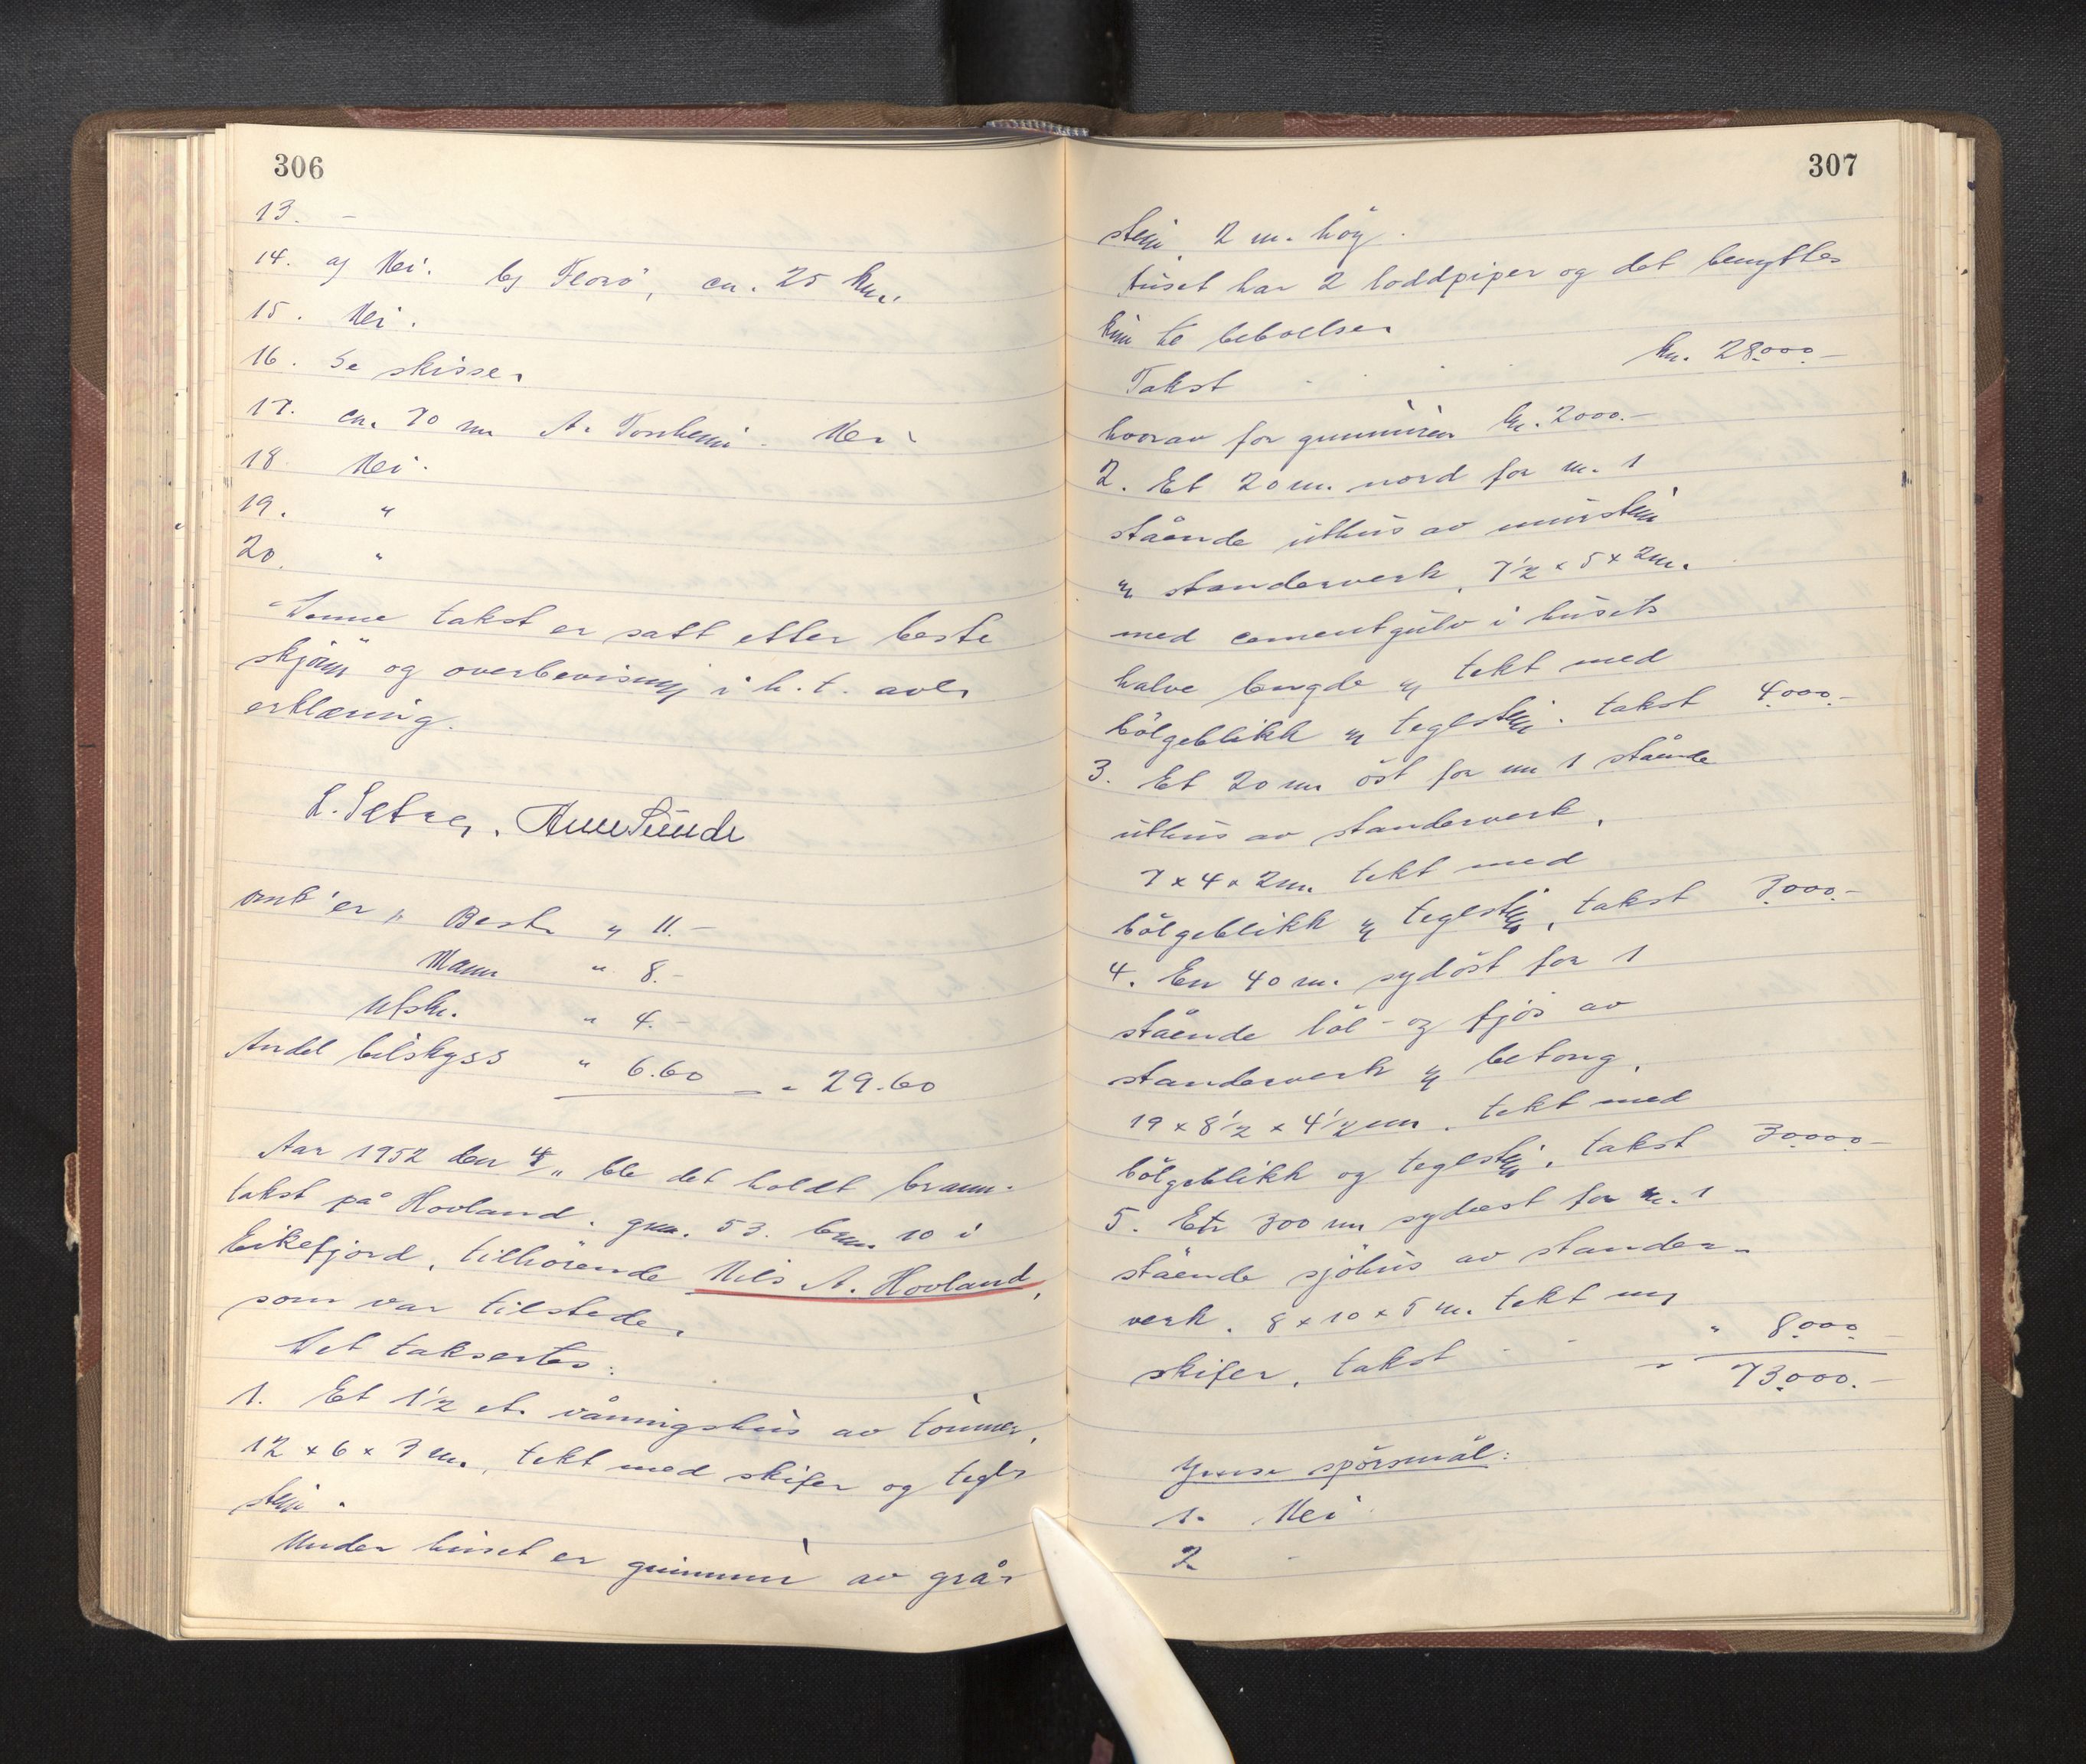 306
13. –
14. a) Nei. b) Florö, ca. 25 km.
15. Nei.
16. Se skisse.
17. ca. 70 m A. Nei
18 Nei.
19. "
20. "
"Denne takst er satt etter beste
skjönn" og overbevisning i h.t. avl.
erklæring.
L. Sætre, Arne Sunde
omk'er, Best. " 11.–
Mann " 8.–
Utskr. " 4.–
Andel bilskyss " 6.60 = 29.60
Aar 1952 den 4/ ble det holdt brann-
takst på Hovland, gnr. 53. bnr. 10 i
Eikefjord, tilhörende Nils A. Hovland,
som var tilstede.
Det taksertes:
1. Et 1½ et. våningshus av tömmer,
12 x 6 x 3 m., tekt med skifer og tegl-
stein.
Under huset er grunnmur av grå-
307
stein, 2 m. höy.
Huset har 2 loddpiper og det benyttes
kun til beboelse.
Takst kr. 28.000.–
hvorav for grunnmuren kr. 2000.–
2. Et 20 m. nord for nr. 1
stående uthus av murstein
og standerverk, 7½ x 5 x 2 m.
med cementgulv i husets
halve lengde og tekt med
bölgeblikk og teglstein. takst 4.000.–
3. Et 20 m öst for nr 1 stående
uthus av standerverk,
7 x 4 x 2 m. tekt med
bölgeblikk og teglstein, takst 3.000.–
4. En 40 m. sydöst for 1
stående löe- og fjös av
standerverk og betong,
19 x 8½ x 4½ m. tekt med
bölgeblikk og teglstein. takst 30.000.–
5. Et 300 m sydvest for nr. 1
stående sjöhus av stander-
verk. 8 x 10 x 5 m. tekt m/
skifer, takst " 8.000.–
= 73.000.–
Ymse spörsmål:
1. Nei
2 –